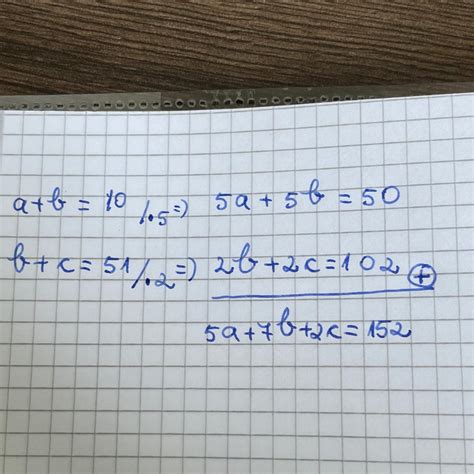 a+b = 10 /·5 => 5a + 5b = 50
b+c = 51 /·2 => 2b+2c=102 ⊕
5a+7b+2c=152